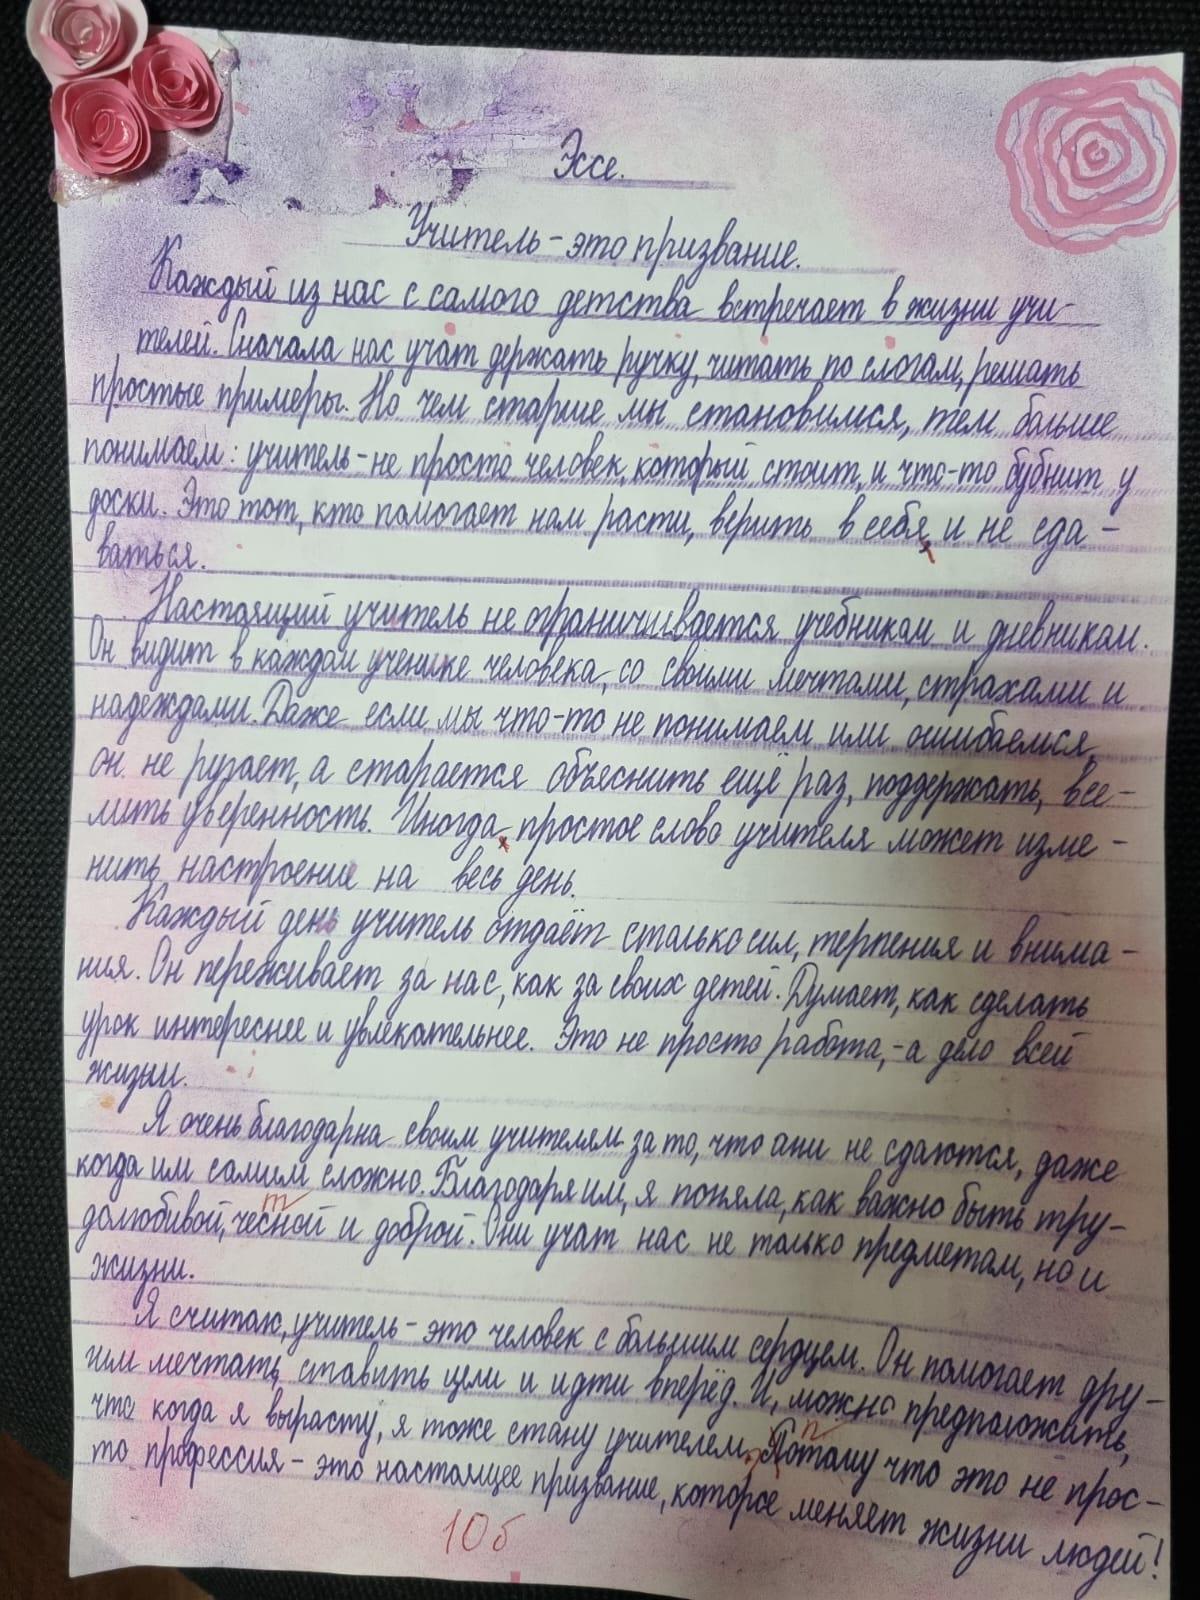 Эссе.
Учитель – это призвание.
Каждый из нас с самого детства встречает в жизни учи-
телей. Сначала нас учат держать ручку, читать по слогам, решать
простые примеры. Но чем старше мы становимся, тем больше
понимаем: учитель – не просто человек, который стоит и что-то бубнит у
доски. Это тот, кто помогает нам расти, верить в себя, и не сда-
ваться.
Настоящий учитель не ограничивается учебникам и дневникам.
Он видит в каждом ученике человека, со своими мечтами, страхами и
надеждами. Даже если мы что-то не понимаем или ошибаемся,
он не ругает, а старается объяснить ещё раз, поддержать, все-
лить уверенность. Иногда, простое слово учителя может изме-
нить настроение на весь день.
Каждый день учитель отдаёт столько сил, терпения и внима-
ния. Он переживает за нас, как за своих детей. Думает, как сделать
урок интереснее и увлекательнее. Это не просто работа, – а дело всей
жизни.
Я очень благодарна своим учителям за то, что они не сдаются, даже
когда им самим сложно. Благодаря им, я поняла, как важно быть тру-
т
долюбивой, чесной и доброй. Они учат нас не только предметам, но и
жизни.
Я считаю, учитель – это человек с большим сердцем. Он помогает дру-
гим мечтать, ставить цели и идти вперёд. И, можно предположить,
что когда я вырасту, я тоже стану учителем. Потому что это не прос-
п
то профессия – это настоящее призвание, которое меняет жизни людей!
10б